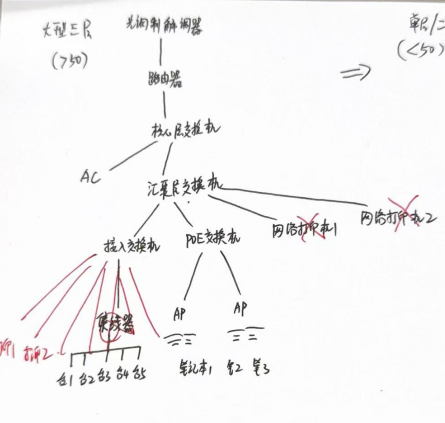 大型三层
(>50)
光调制解调器
单层/二
(<50)
路由器
核心层交换机
AC
汇聚层交换机
网络打印机1
网络打印机2
接入交换机
POE交换机
集线器
AP
AP
印1
打印2
台1 台2 台3 台4 台5
笔记本1 笔2 笔3